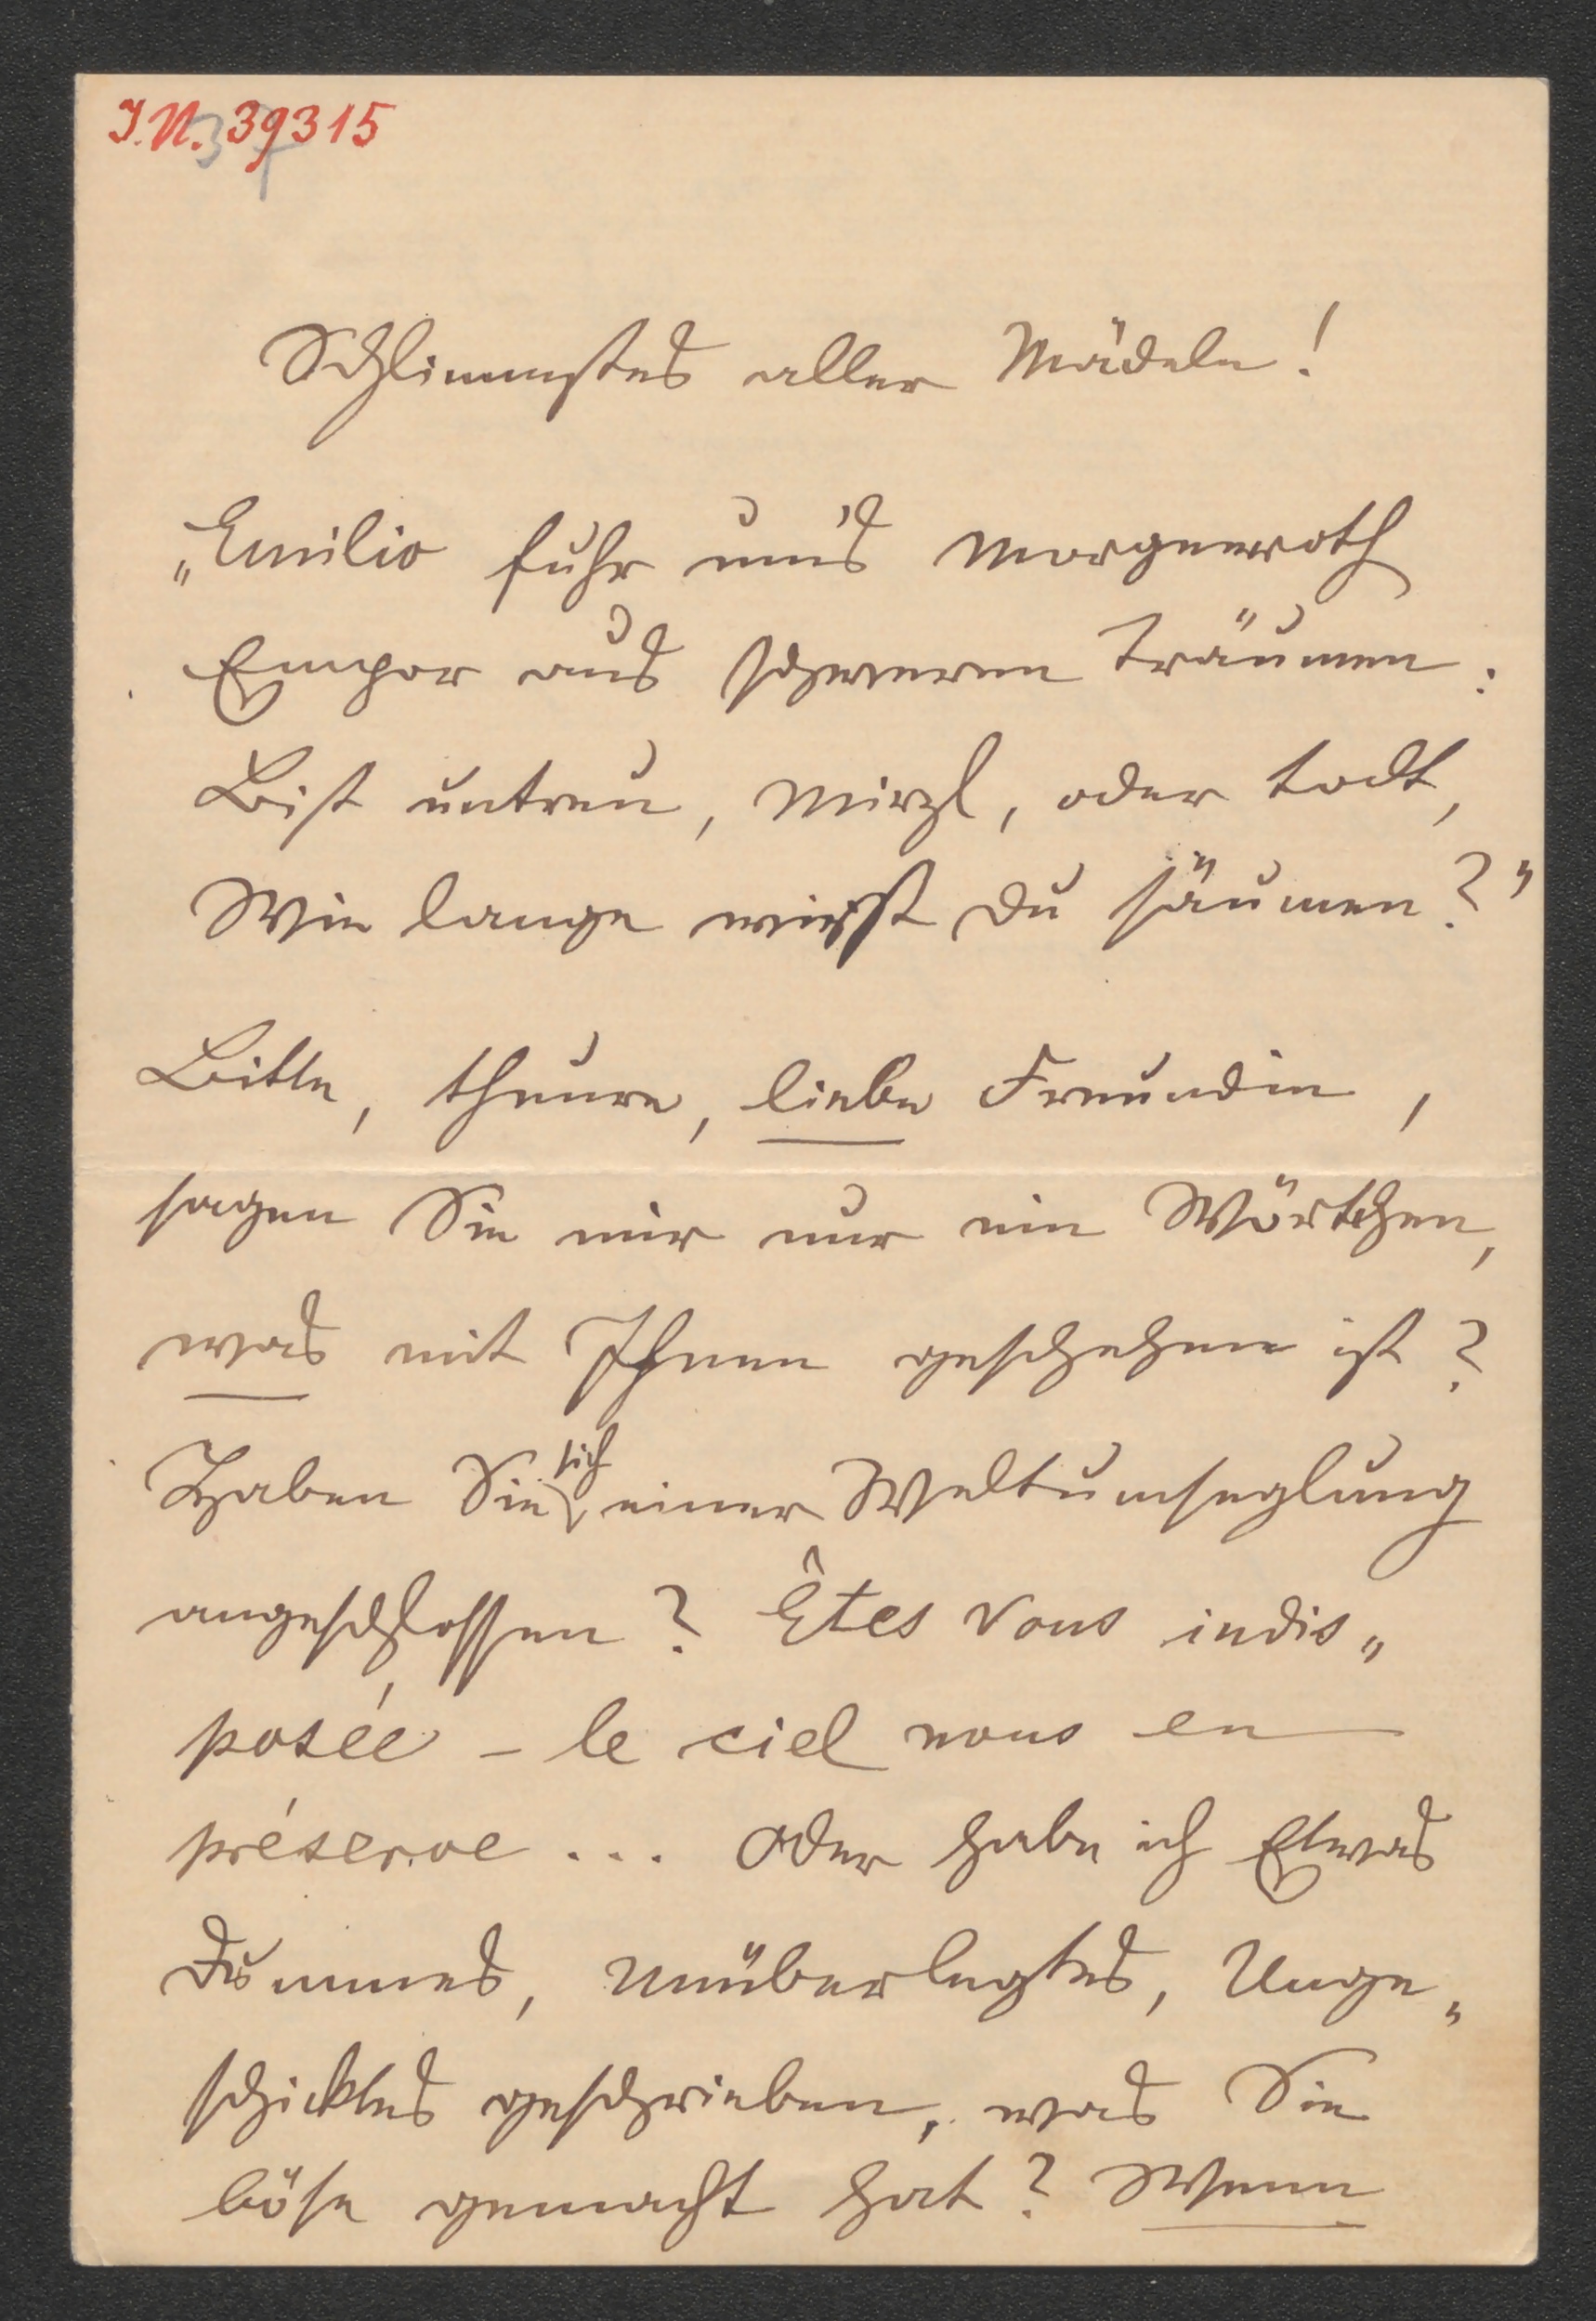 I.N. 39315
37
Schlimmstes aller Mädeln!
„Emilio fuhr um's Morgenroth
Empor aus schweren Träumen:
Bist untreu, Mirzl, oder todt,
Wie lange wirst du säumen?"
Bitte, theure, liebe Freundin,
sagen Sie mir nur ein Wörtchen,
was mit Ihnen geschehen ist?
Haben Sie sich einer Weltumseglung
angeschlossen? Êtes vous indis„
posée – le ciel nous en
préserve ... Oder habe ich Etwas
Dummes, Unüberlegtes, Unge„
schicktes geschrieben, was Sie
böse gemacht hat? Wenn